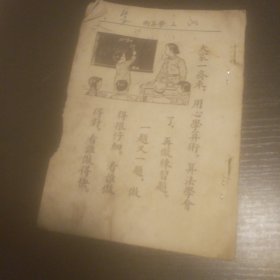 大家一齊來，用心學算術。算法學會
了，再做練習題。
一題又一題，做
得很仔細。看誰做
得對，看誰做得快。